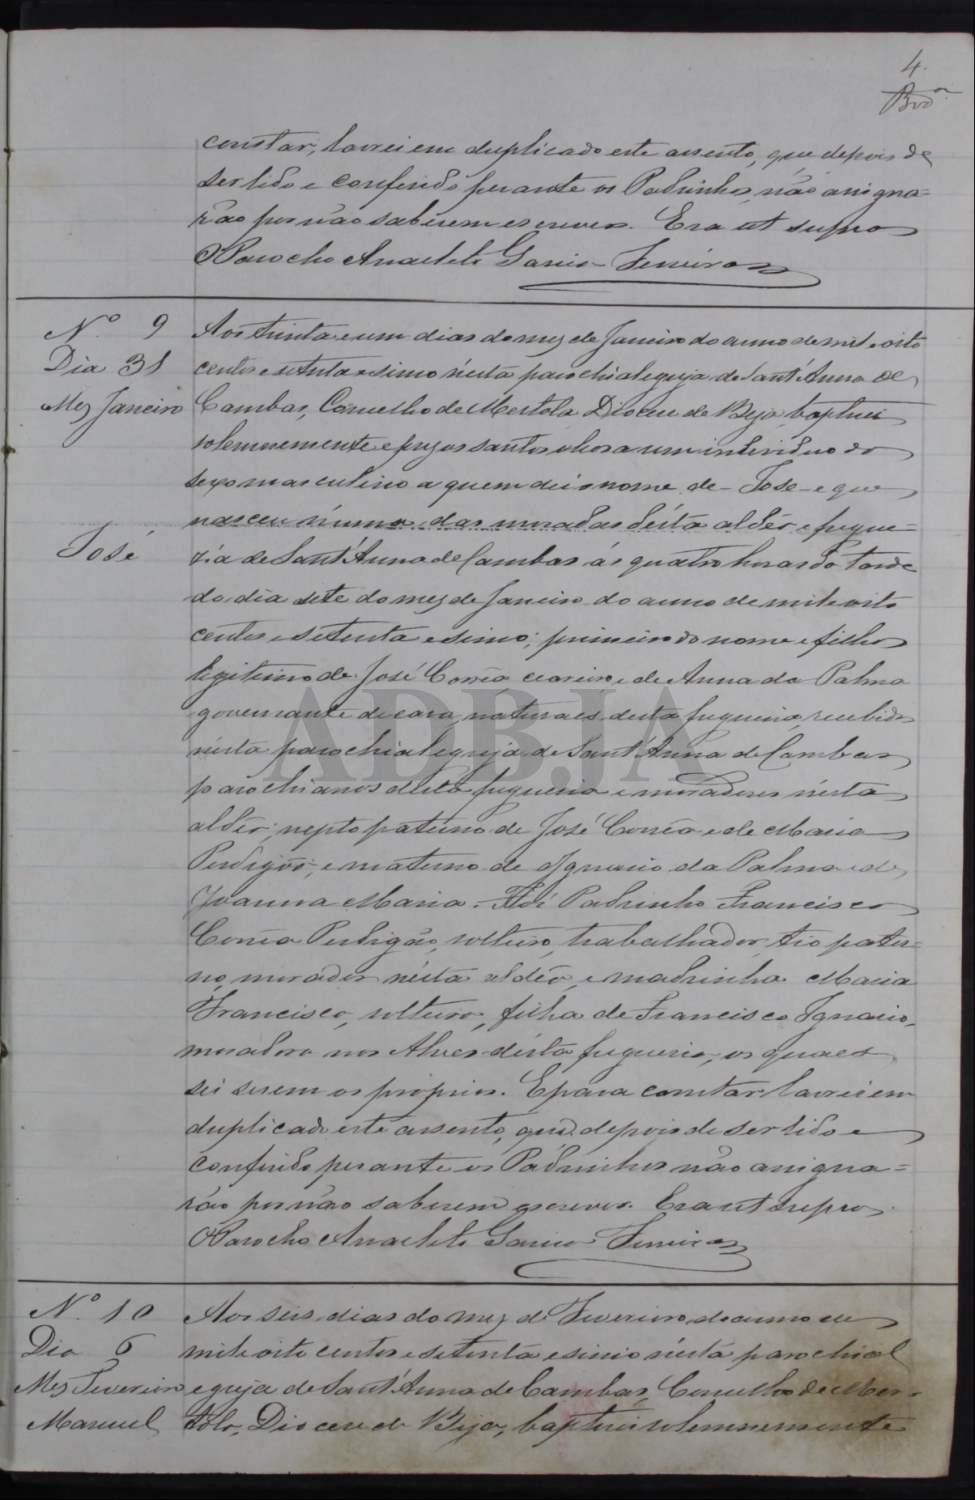 4.
constar, lavrei em duplicado este assento, que, depois de
ser lido e conferido perante os Padrinhos, não assigna-
rão por não saberem escrever. Era ut supra
O Parocho Anacleto Garcia Ferreira
Nº 9
Dia 31
Mez Janeiro
José
Aos trinta e um dias do mez de Janeiro do anno de mil e oito
centos e setenta e sinco nésta parochial egreja de Sant'Anna de
Cambas, Concelho de Mertola, Diocese de Beja, baptisei
solemnemente e puz os santos oleos a um individuo do
sexo masculino a quem dei o nome de - José - e que
nasceu n'uma das moradas désta aldêa e fregue-
zia de Sant'Anna de Cambas ás quatro horas da tarde
do dia sete do mez de Janeiro do anno de mil e oito
centos e setenta e sinco; primeiro do nome e filho
legitimo de José Corrêa e de Anna da Palma
governante de casa, naturaes desta freguezia, recebidos
nésta parochial egreja de Sant'Anna de Cambas
parochianos désta freguezia e moradores nésta
aldêa; nepto paterno de José Corrêa e de Maria
Perdigôa, e materno de Ignacio da Palma e de
Joanna Maria. Foi Padrinho Francisco
Corrêa Perdigão, solteiro, trabalhador, tio pater-
no, morador nésta aldêa, e madrinha Maria
Francisca, solteira, filha de Francisco Ignacio,
moradora nos Alves désta freguezia, os quaes
sei serem os proprios. E para constar lavrei em
duplicado este assento, que, depois de ser lido e
conferido perante os Padrinhos não assigna-
rão por não saberem escrever. Era ut supra
O Parocho Anacleto Garcia Ferreira
Nº 10
Dia 6
Mez Fevereiro
Manuel
Aos seis dias do mez de Fevereiro do anno de
mil e oito centos e setenta e sinco nésta parochial
egreja de Sant'Anna de Cambas, Concelho de Mer-
tola, Diocese de Beja, baptisei solemnemente
ADBJA